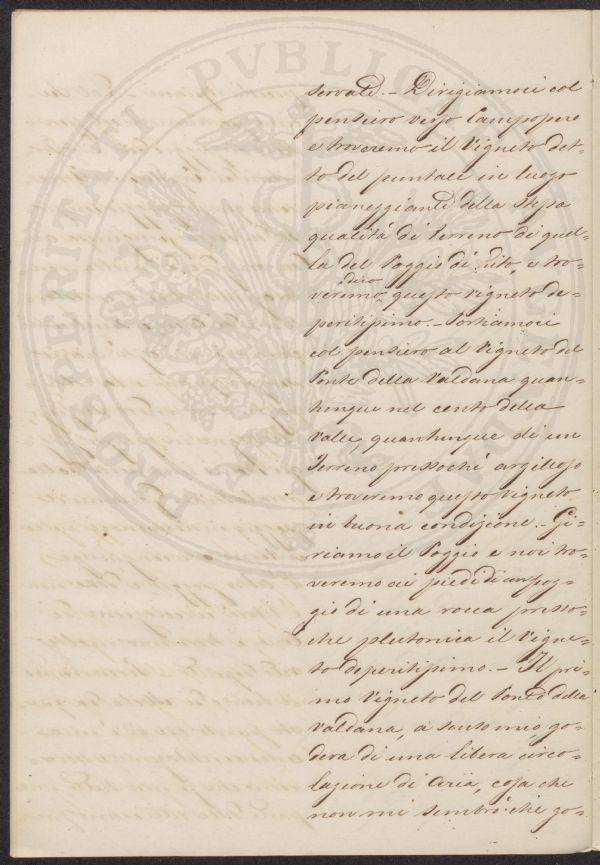 servati. - Dirigiamoci col
pensiero verso Campopero
e troveremo il Vigneto det=
to del puntale in luogo
pianeggiante della stessa
qualità di terreno di quel=
la del Poggio di sito, e tro=
diro
veremo, questo vigneto de=
peritissimo. - Portiamoci
col pensiero al Vigneto del
Ponte della Valdana quan=
tunque nel cento della
Valle, quantunque di un
Terreno pressoché argilloso
e troveremo questo Vigneto
in buona condizione. - Gi=
riamo il Poggio e noi tro=
veremo ai piedi di un pog=
gio di una rocca presso=
che plutonica il Vigne=
to deperitissimo. - Il pri=
mo Vigneto del Ponte della
Valdana, a senso mio, go=
deva di una libera circo=
lazione di Aria, cosa che
non mi sembrò che go=
PROSPERITATI PVBLICAE